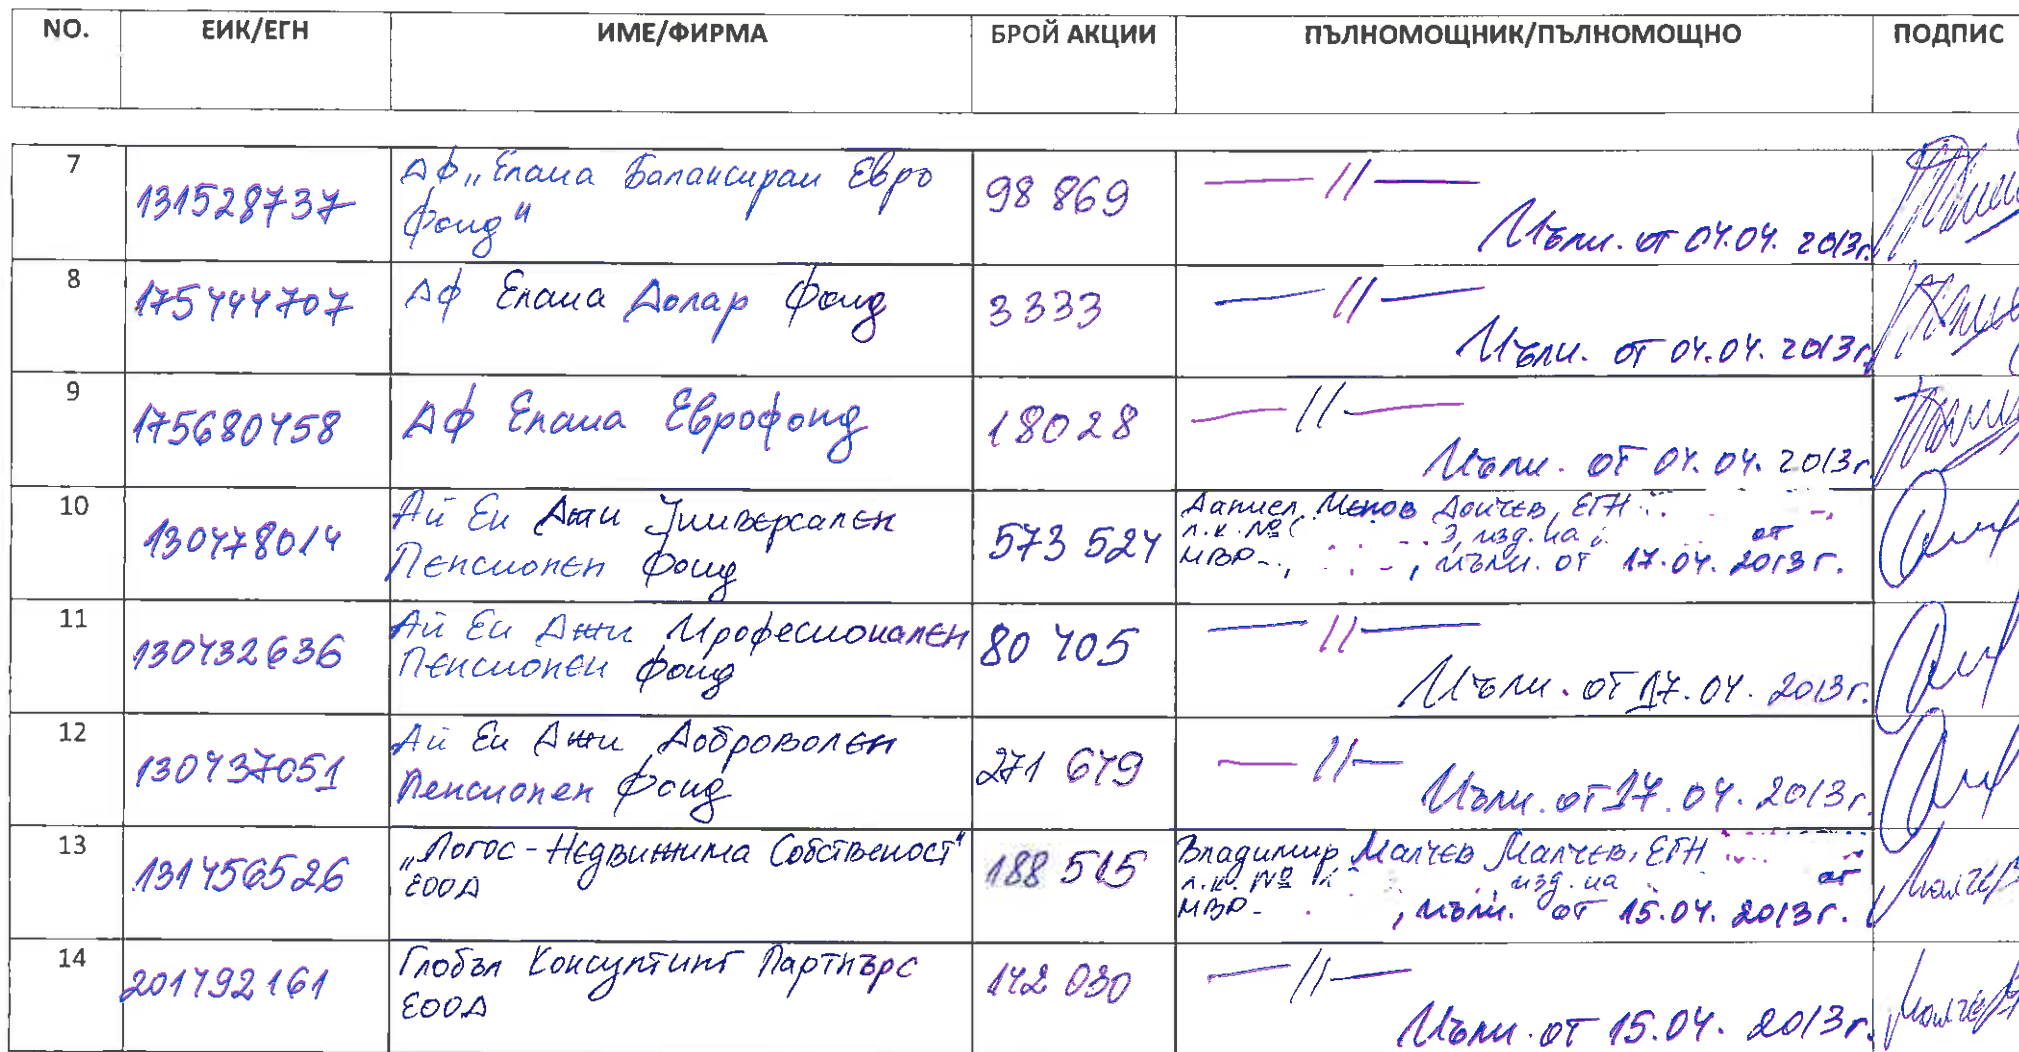 NO. ЕИК/ЕГН ИМЕ/ФИРМА БРОЙ АКЦИИ ПЪЛНОМОЩНИК/ПЪЛНОМОЩНО ПОДПИС
7 131528737 АФ „Елана Балансиран Евро Фонд" 98 869 — // —
Пълн. от 04.04. 2013г.
8 175444707 АФ Елана Долар Фонд 3333 — // —
Пълн. от 04.04. 2013г.
9 175680458 АФ Елана Еврофонд 18028 — // —
Пълн. от 04.04. 2013г.
10 130478014 Ай Ен Джи Универсален
Пенсионен Фонд 573 524 Даниел Ненов Дончев, ЕГН
л.к. № изд. на от
МВР- , пълн. от 17.04. 2013г.
11 130432636 Ай Ен Джи Професионален
Пенсионен Фонд 80 405 — // —
Пълн. от 17.04. 2013г.
12 130437051 Ай Ен Джи Доброволен
Пенсионен Фонд 271 679 — // —
Пълн. от 17.04. 2013г.
13 131456526 „Логос - Недвижима Собственост"
ЕООД 188 515 Владимир Малчев Малчев, ЕГН
л.к. № изд. на от
МВР- , пълн. от 15.04. 2013г.
14 201492161 Глобъл Консултинг Партнърс
ЕООД 142 030 — // —
Пълн. от 15.04. 2013г.